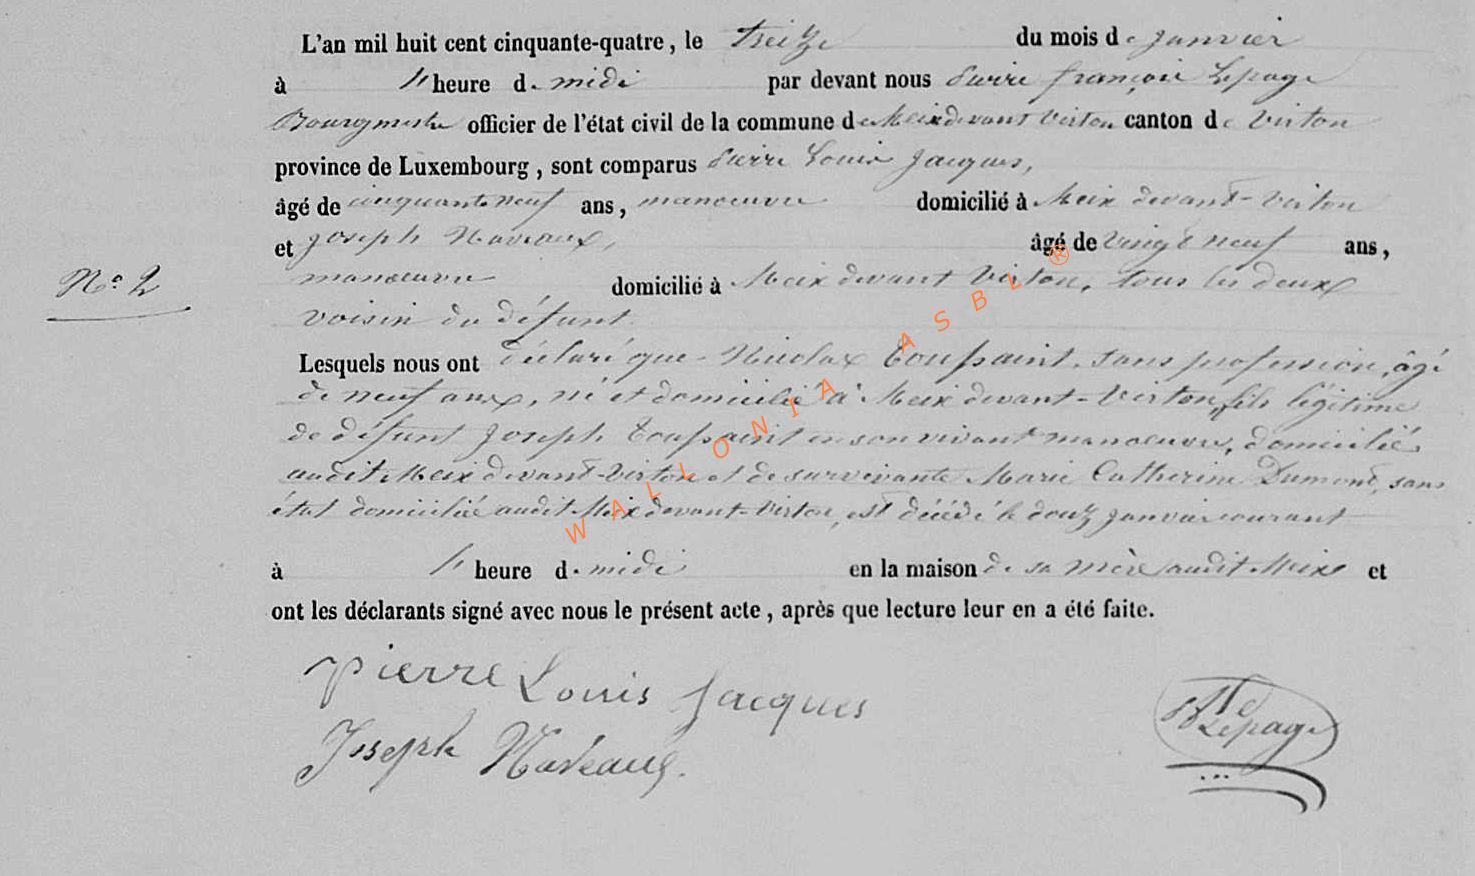 L'an mil huit cent cinquante-quatre, le treize du mois de janvier
à heure de midi par devant nous Pierre françois Lepage
Bourgmestre officier de l'état civil de la commune de Meix devant Virton canton de Virton
province de Luxembourg, sont comparus Pierre Louis Jacques,
âgé de cinquante neuf ans, manoeuvre domicilié à Meix devant-Virton
et Joseph Naveaux, âgé de vingt neuf ans,
N° 2
manoeuvre domicilié à Meix devant Virton, tous les deux
voisin du défunt.
Lesquels nous ont déclaré que Nicolas Toussaint, sans profession, âgé
de neuf ans, né et domicilié à Meix devant-Virton, fils légitime
de défunt Joseph Toussaint en son vivant manoeuvre, domicilié
audit Meix devant-Virton et de survivante Marie Catherine Dumont, sans
état domiciliée audit Meix devant-Virton, est décédé le douze janvier courant
à heure de midi en la maison de sa mère audit Meix et
ont les déclarants signé avec nous le présent acte, après que lecture leur en a été faite.
pierre Louis Jacques
Joseph Naveaux.
Lepage
WALLONIA ASBL ®